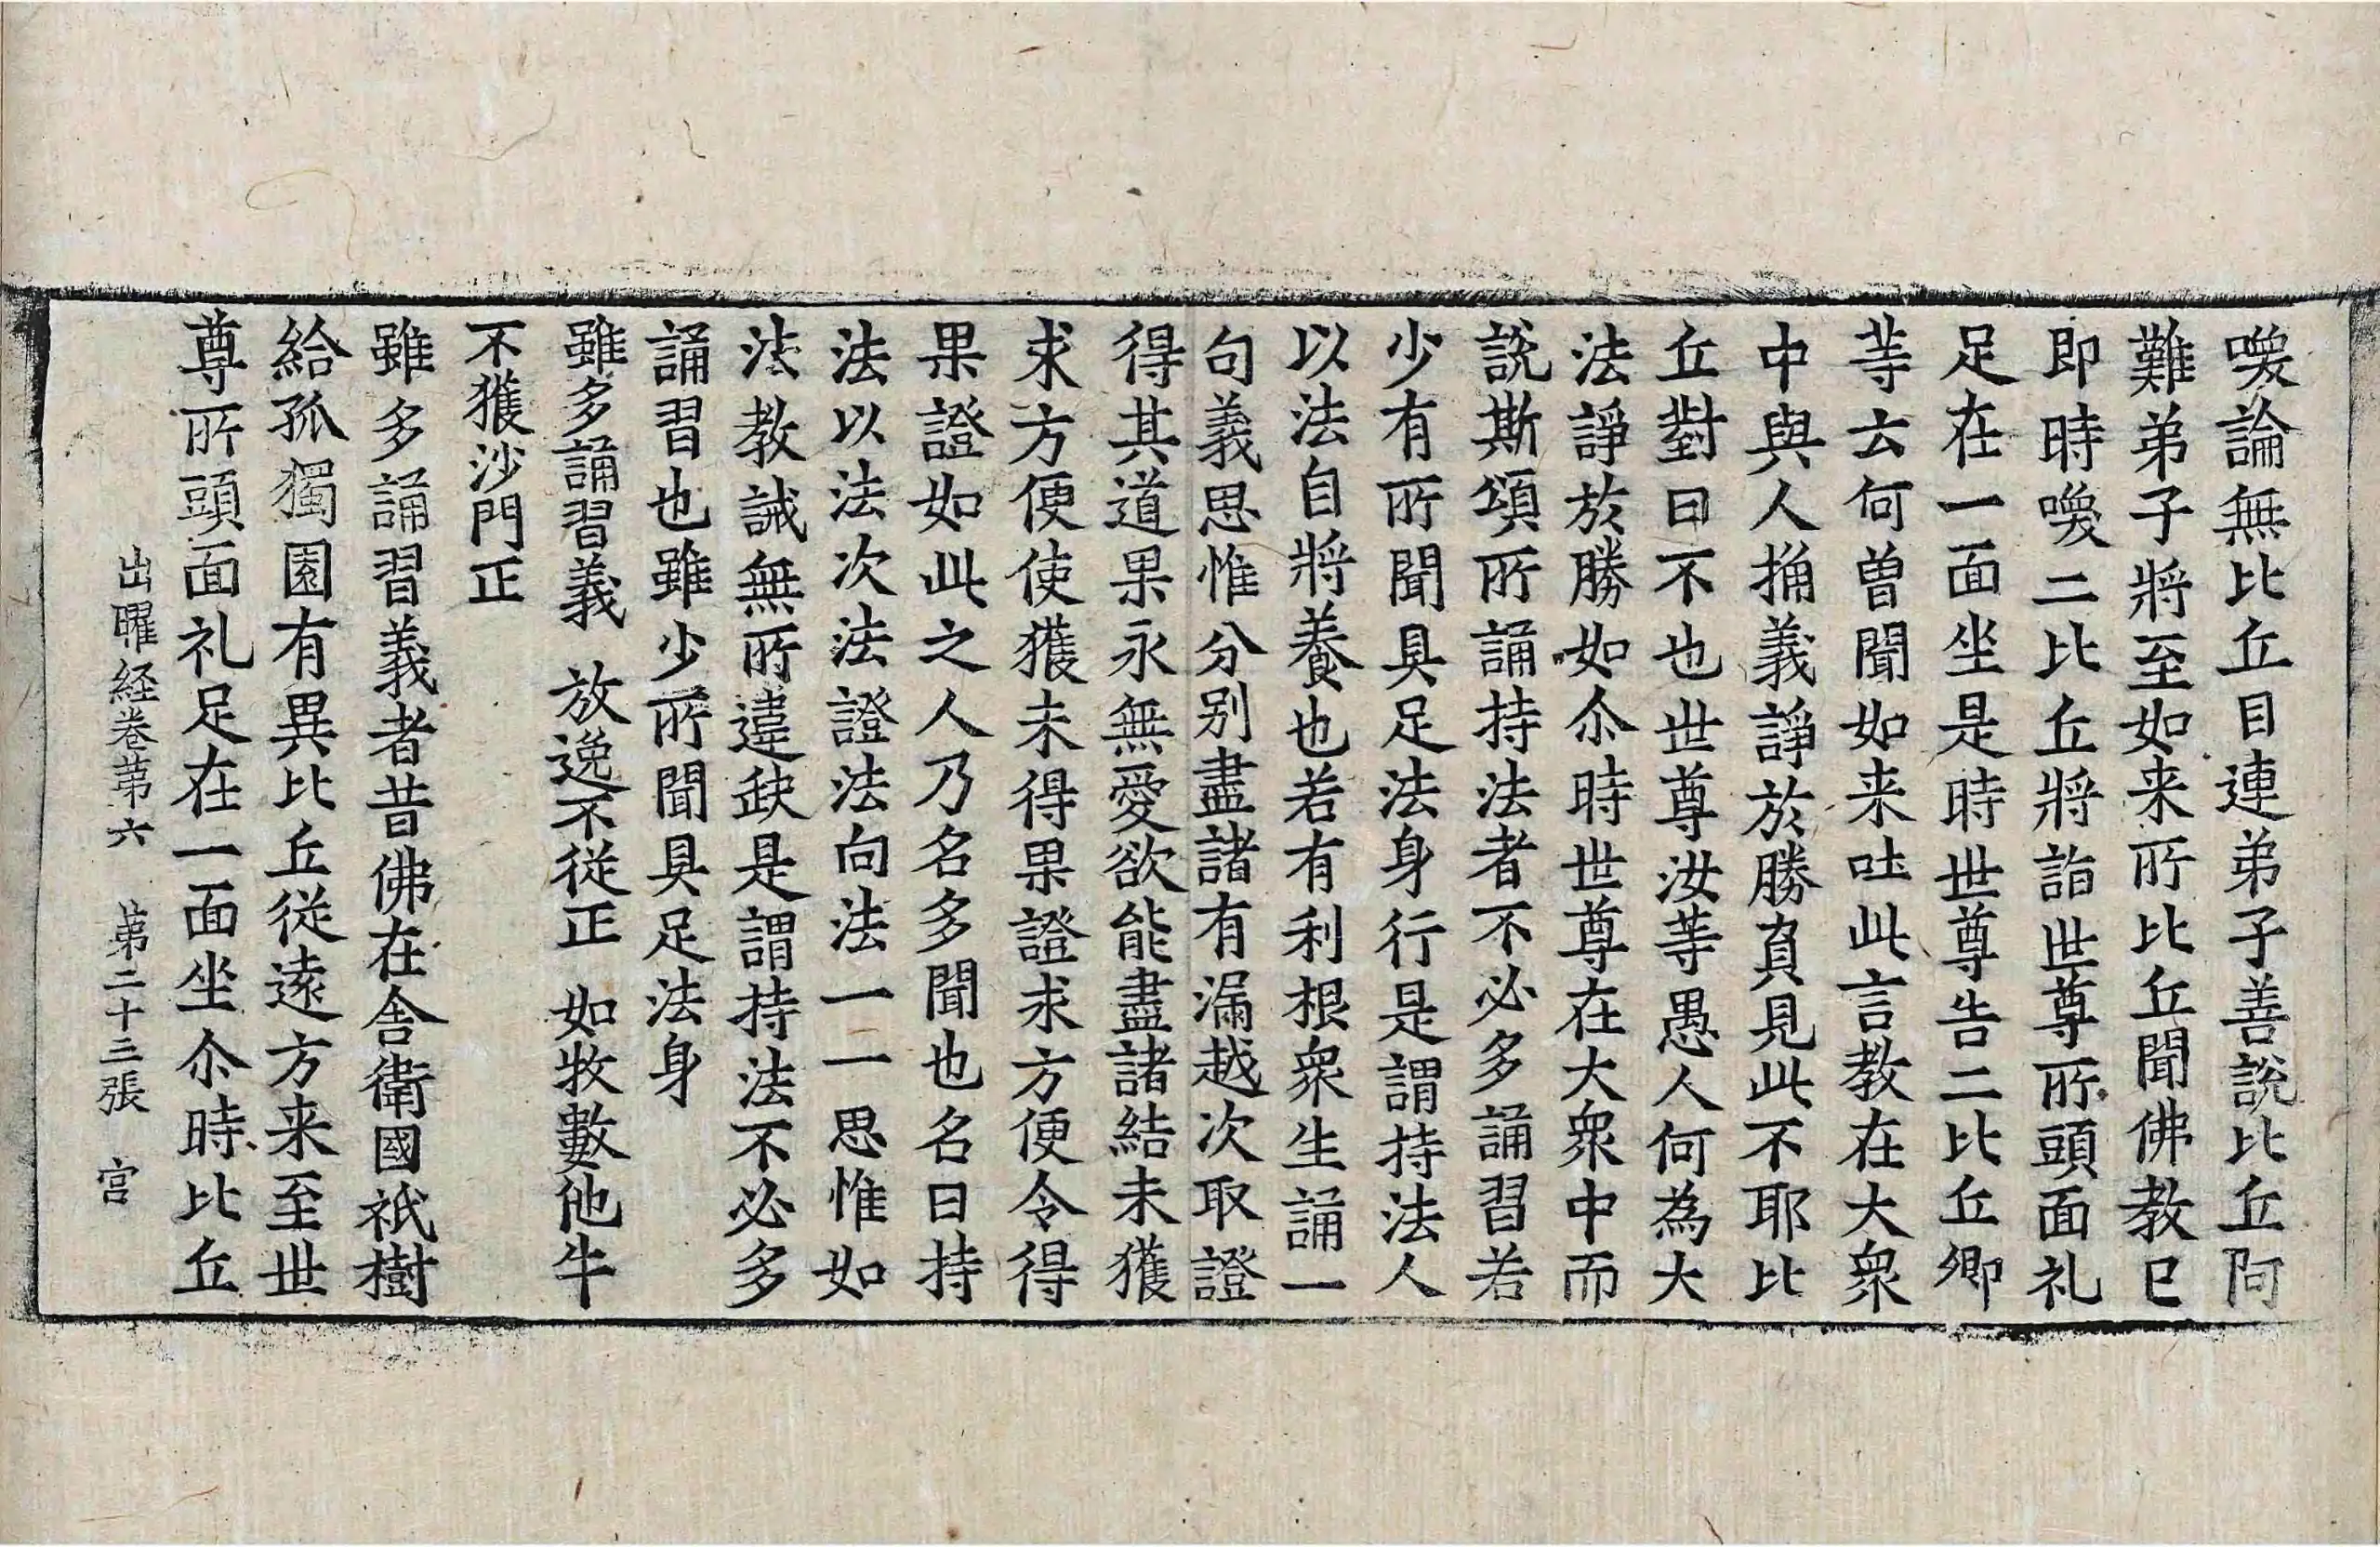 喚論無比丘目連弟子善說比丘阿
難弟子將至如来所比丘聞佛教已
即時喚二比丘將詣世尊所頭面礼
足在一面坐是時世尊告二比丘卿
等云何曽聞如来吐此言教在大衆
中與人捔義諍於勝負見此不耶比
丘對曰不也世尊汝等愚人何為大
法諍於勝如尒時世尊在大衆中而
說斯頌所誦持法者不必多誦習若
少有所聞具足法身行是謂持法人
以法自將養也若有利根衆生誦一
句義思惟分別盡諸有漏越次取證
得其道果永無愛欲能盡諸結未獲
求方便使獲未得果證求方便令得
果證如此之人乃名多聞也名曰持
法以法次法證法向法一一思惟如
法教誡無所違缺是謂持法不必多
誦習也雖少所聞具足法身
雖多誦習義　放逸不從正　如牧數他牛
不獲沙門正
雖多誦習義者昔佛在舎衛國祇樹
給孤獨園有異比丘從遠方来至世
尊所頭面礼足在一面坐尒時比丘
出曜経卷第六　第二十三張　宫